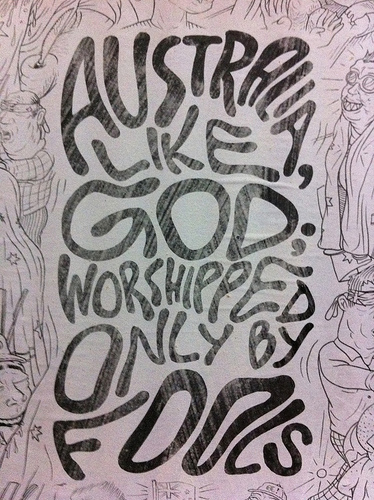 AUSTRALIA,
LIKE
GOD:
WORSHIPPED
ONLY BY
FOOLS